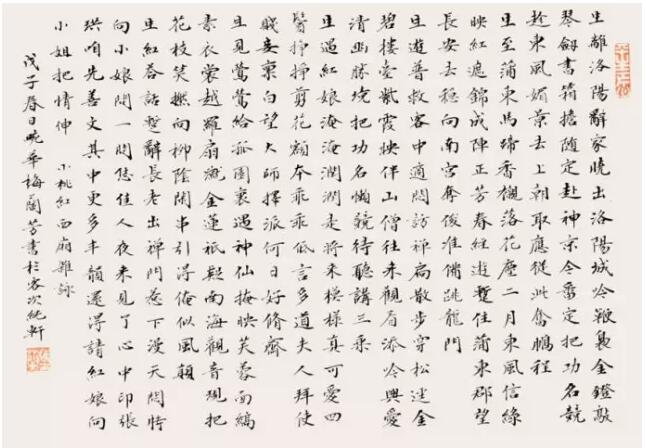 生離洛陽辭家曉出洛陽城吟鞭裊金鐙敲
琴劍書箱擔隨定赴神京今番定把功名競
趁東風媚景去上朝取應從此奮鵬程
生至蒲東馬蹄香襯落花塵二月東風信綠
映紅遮錦成陣正芳春經遊暫住蒲東郡望
長安去穩向南宮奪俊准備跳龍門
生遊普救客中適悶訪禪扃散步穿松逕金
碧樓臺紫霞映伴山僧往來觀看添吟興愛
清幽勝境把功名懶競待聽講三乘
生遇紅娘淹淹潤潤走將來模樣真可愛四
鬢掙掙剪花額本乖乖低言多道夫人拜使
賤妾稟白望大師擇派何日好脩齋
生見鶯鶯給孤園裏遇神仙掩映芙蓉面縞
素衣裳越羅扇蹴金蓮祇疑南海觀音現把
花枝笑撚向柳陰閒串引得俺似風顛
生紅答話蹔辭長老出禪門惹下漫天悶特
向小娘問一問您佳人夜來見了心中印張
珙咱先善文其中更多丰韻還得請紅娘向
小姐把情伸 小桃紅西廂雜詠
戊子春日畹華梅蘭芳書於客次純軒